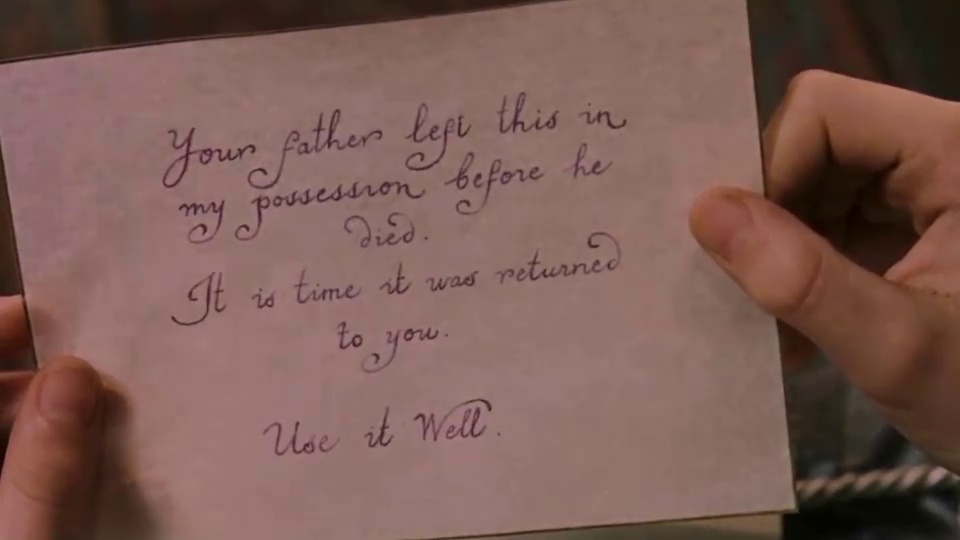 Your father left this in
my possession before he
died.
It is time it was returned
to you.
Use it Well.